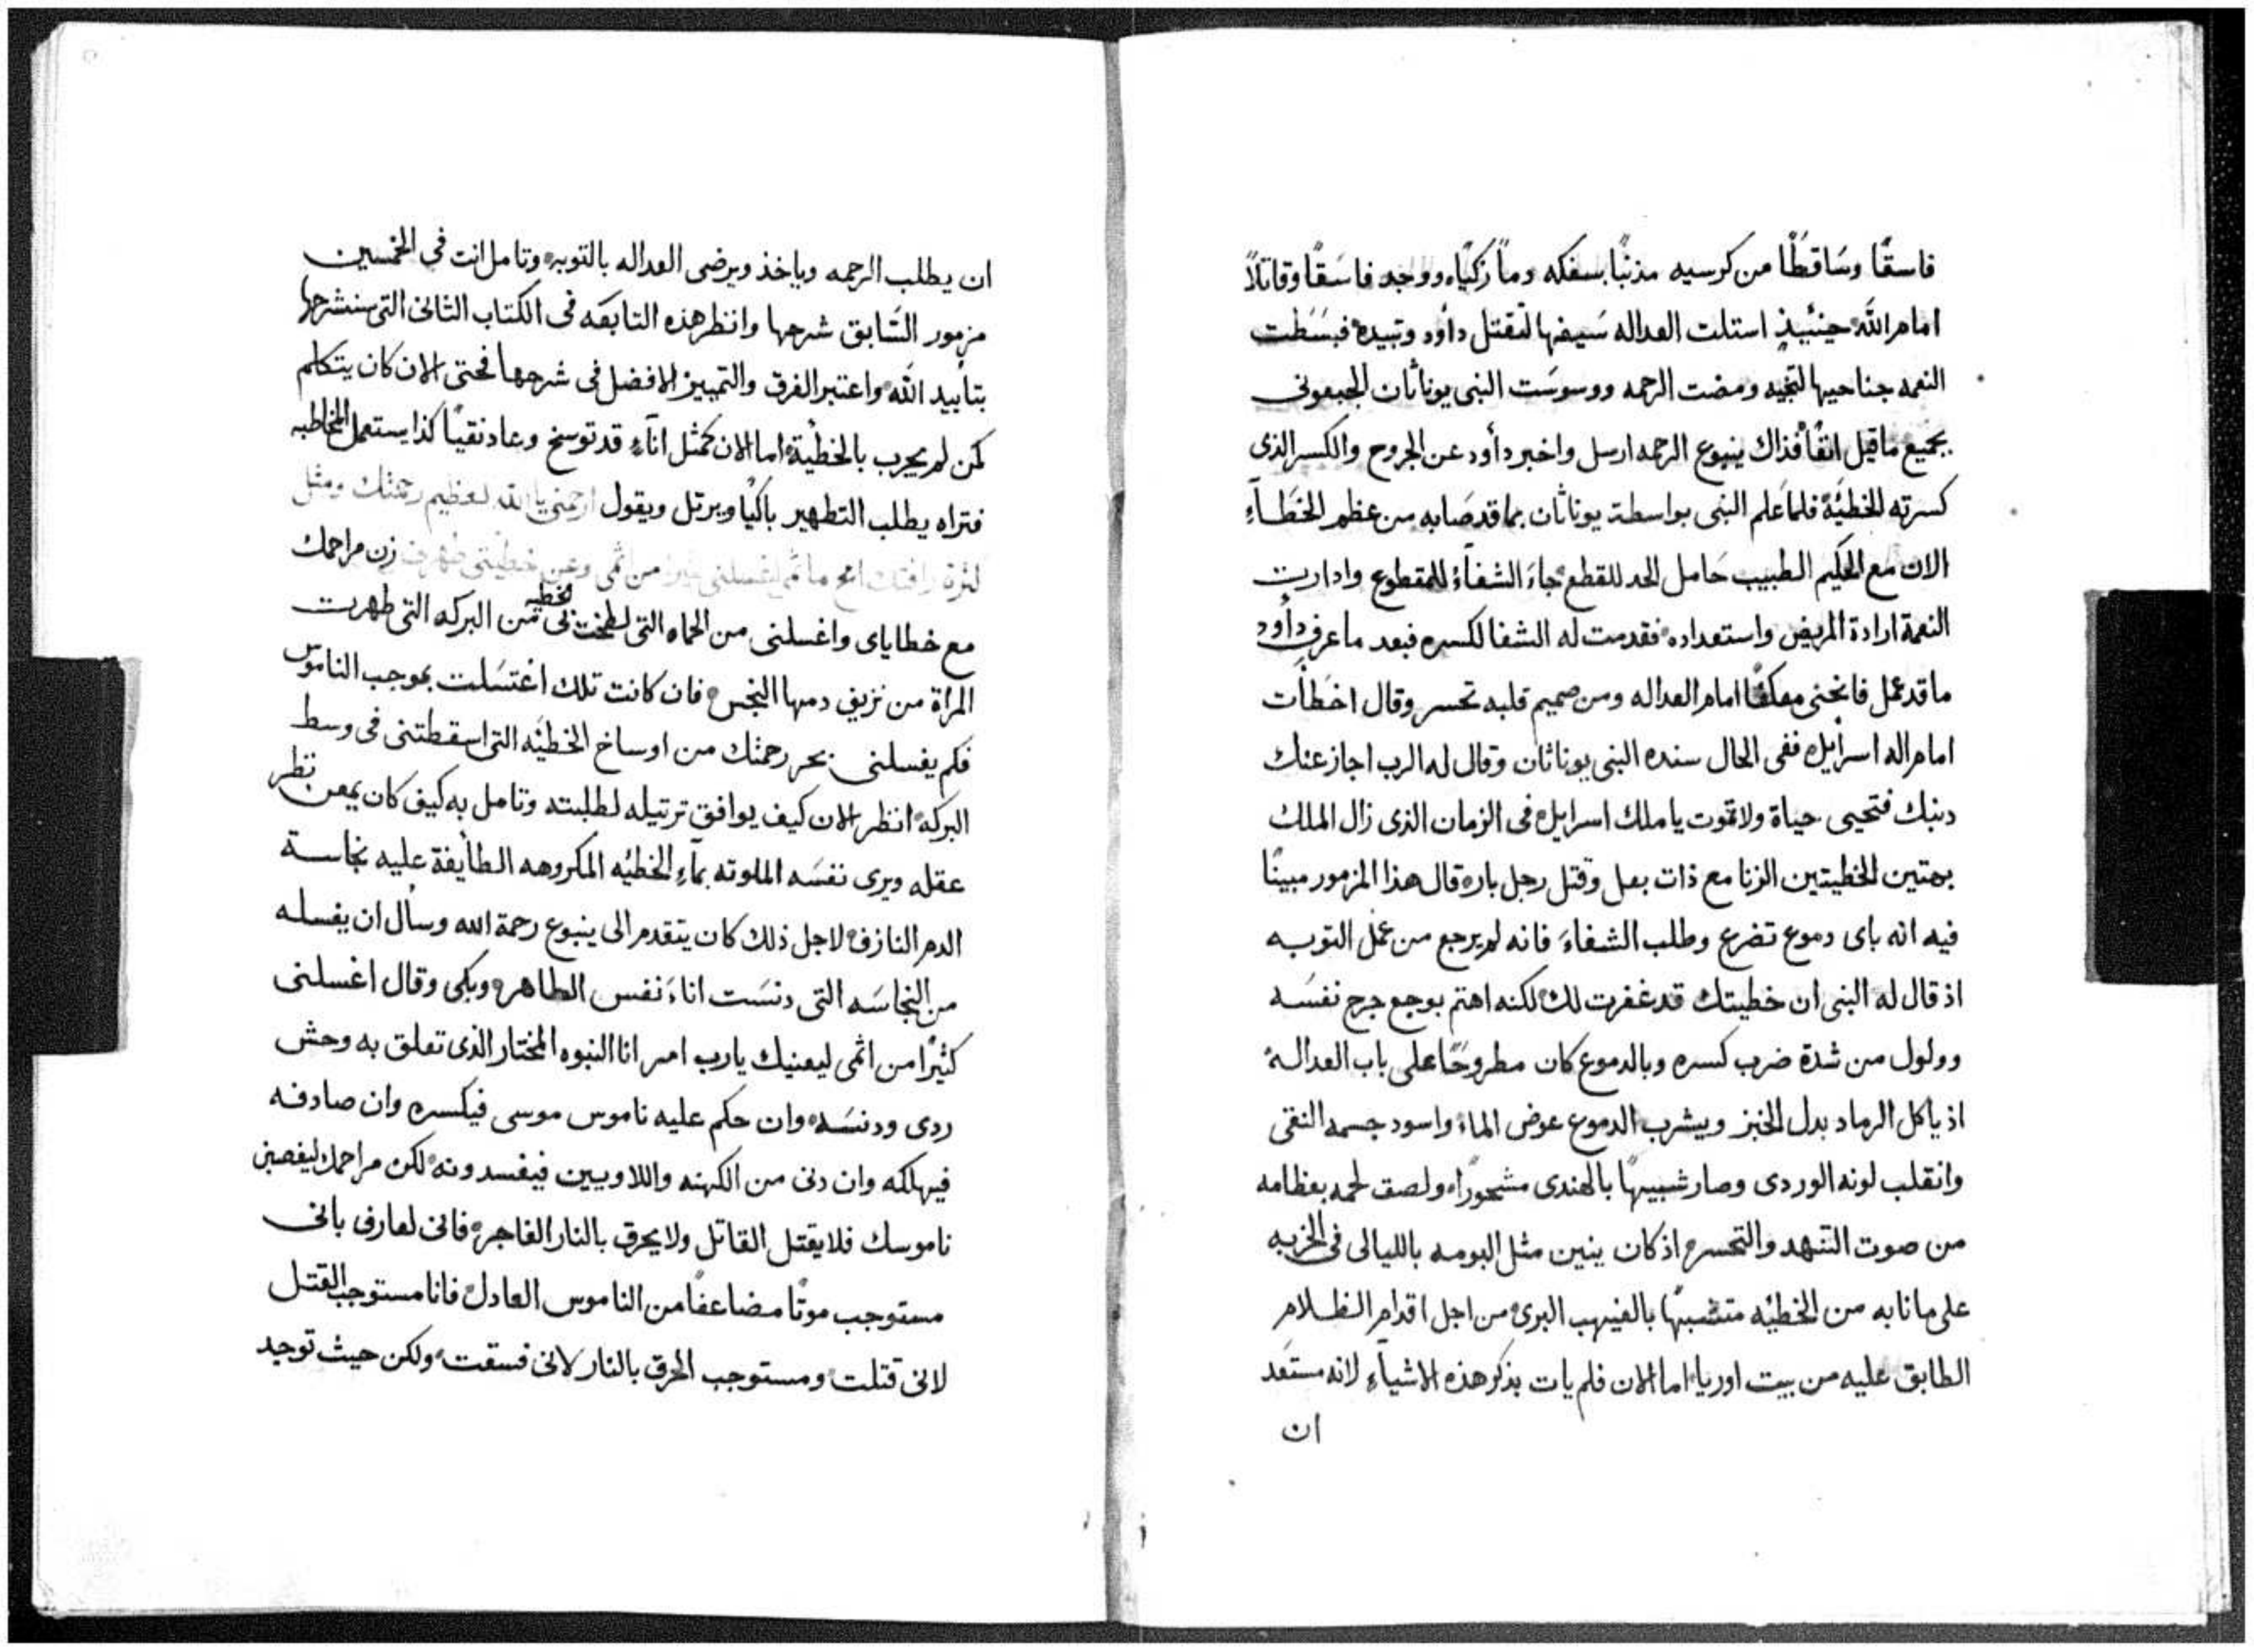 فاسقًا وسَاقطًا من كرسيه مذنبًا بسفكه دمًا زكيًا، ووجد فاسَقًا وقاتلًا
امام الله حينئيذٍ استلت العداله سَيفها لتقتل دأود وتبيده فبسَطت
النعمه جناحيها لتنجيه ومضت الرحمه ووسوسَت النبى يوناثان الجبعونى
بجميع ماقيل انفًا فذاك ينبوع الرحمه ارسل واخبر دأود عن الجروح والكسر الذى
كسرته الخطيَّة فلما عَلم النبى بواسطة يوناثان بما قد صَابه من عظم الخَطَآءِ
الان مع الحكيم الطبيب حَامل الحد للقطع جاءَ الشفآءُ للمقطوع وادارت
النعمة ارادة المريض واستعداده فقدمت له الشفا لكسره فبعد ماعرف دأود
ماقد عمل فانحنى معكفًا امام العداله ومن صميم قلبه تحسر وقال اخطأت
امام اله اسرأيل، ففى الحال سنده النبى يوناثان وقال له الرب اجاز عنك
دنبك فتحيى حياة ولا تموت ياملك اسرايل، فى الزمان الذى زال الملك
بهتين الخطيتين الزنا مع ذات بعل وقتل رجل بار، قال هذا المزمور مبينًا
فيه انه باى دموع تضرع وطلب الشفاءَ فانه لم يرجع من عمل التوبه
اذ قال له النبى ان خطيتك قد غفرت لك، لكنه اهتم بوجع جرح نفسَه
وولول من شدة ضرب كسره وبالدموع كان مطروحًا على باب العداله
اذ ياكل الرماد بدل الخبز ويشرب الدموع عوض الماء، واسود جسمه النقى
وانقلب لونه الوردى وصار شبيهًا بالهندى مشحورًا، ولصق لحمه بعظامه
من صوت التنهد والتحسر، اذ كان ينين مثل البومه بالليالى فى الخربه
على مانابه من الخطيئه متشبهًا بالغيهب البرى، من اجل اقدام الظلام
الطابق عليه من بيت اوريا، اما الان فلم يات بذكر هذه الاشيآءِ لانه مستعَد
ان
ان يطلب الرحمه وياخذ ويرضى العداله بالتوبه، وتامل انت فى الخمسين
مزمور السَّابق شرحها وانظر هذه التابعَه فى الكتاب الثانى التى سنشرحها
بتأييد الله، واعتبر الفرق والتمييز الافضل فى شرحها فحتى الان كان يتكلم
كمن لم يجرب بالخطيْة، اما الان كمثل انآءٍ قد توسخ وعاد نقيًا كذا يستعمل المخاطبه
فتراه يطلب التطهير باكيًا ويرتل ويقول ارحمنى يا الله لعظيم رحمتك ومثل
كثرة رافتك امح ماثمى اغسلنى كثيرًا من اثمى وعن خطيتى طهرنى زن مراحمك
مع خطاياى واغسلنى من الحماه التى لطخت بى الخطيه من البركه التى طهرت
المراة من نزيف دمها النجس، فان كانت تلك اغتسَلت بموجب الناموس
فكم يغسلنى بحر رحمتك من اوساخ الخطيَّه التى اسقطتنى فى وسط
البركه، انظر الان كيف يوافق ترتيله لطلبته وتامل به كيف كان يمعن نظر
عقله ويرى نفسَه الملوته بمآءِ الخطيَّه المكروهه الطأيفة عليه نجاسة
الدم النازف، لاجل ذلك كان يتقدم الى ينبوع رحمة الله وسأل ان يغسله
من النجاسَه التى دنسَت اناءَ نفس الطاهره وبكى وقال اغسلنى
كثيرًا من اثمى ليعنيك يارب امر انا النبوه المختار الذى تعلق به وحش
ردى ودنسَه، وان حكم عليه ناموس موسى فيكسره وان صادفه
فيهلكه وان دنى من الكهنه واللاويين فيفسدونه، لكن مراحمك ليغصبن
ناموسك فلا يقتل القاتل ولا يحرق بالنار الفاجر، فانى لعارف بانى
مستوجب موتًا مضاعفًا من الناموس العادل، فانا مستوجب القتل
لانى قتلت، ومستوجب الحرق بالنار لانى فسقت، ولكن حيث توجد